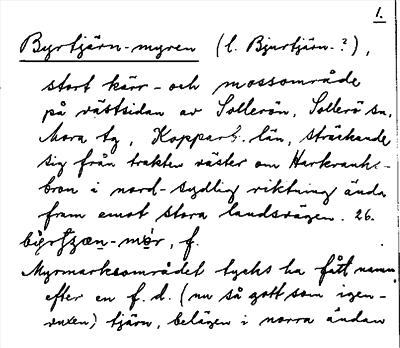 1.
Byrtjärn-myren (l. Bjurtjärn-?),
stort kärr- och mossområde
på västsidan av Sollerön, Sollerö sn,
Mora tg, Kopparb. län, sträckande
sig från trakten väster om
bron i nord-sydlig riktning ända
fram emot stora landsvägen. 26.
f.
Myrmarksområdet tycks ha fått namn
efter en f.d. (nu så gott som igen-
vuxen) tjärn, belägen i norra ändan